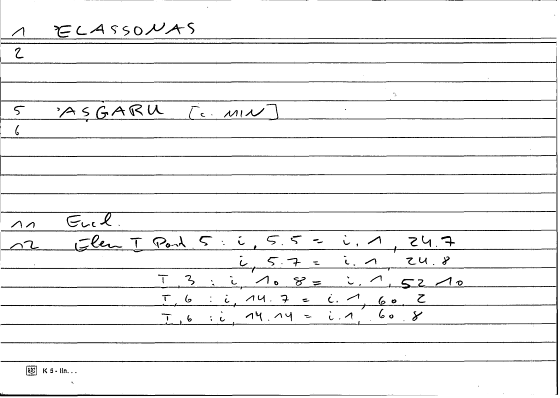 1 ELASSONAS
2
5 'AṢĠARU [c. MIN]
6
11 Eucl.
12 Elem I Post 5 : i, 5.5 = i.1, 24.7
i, 5.7 = i.1, 24.8
I, 3 : i, 10.8 = i.1, 52.10
I, 6 : i, 14.7 = i.1, 60.2
I, 6 : i, 14.14 = i.1, 60.8
K 5 - lin...